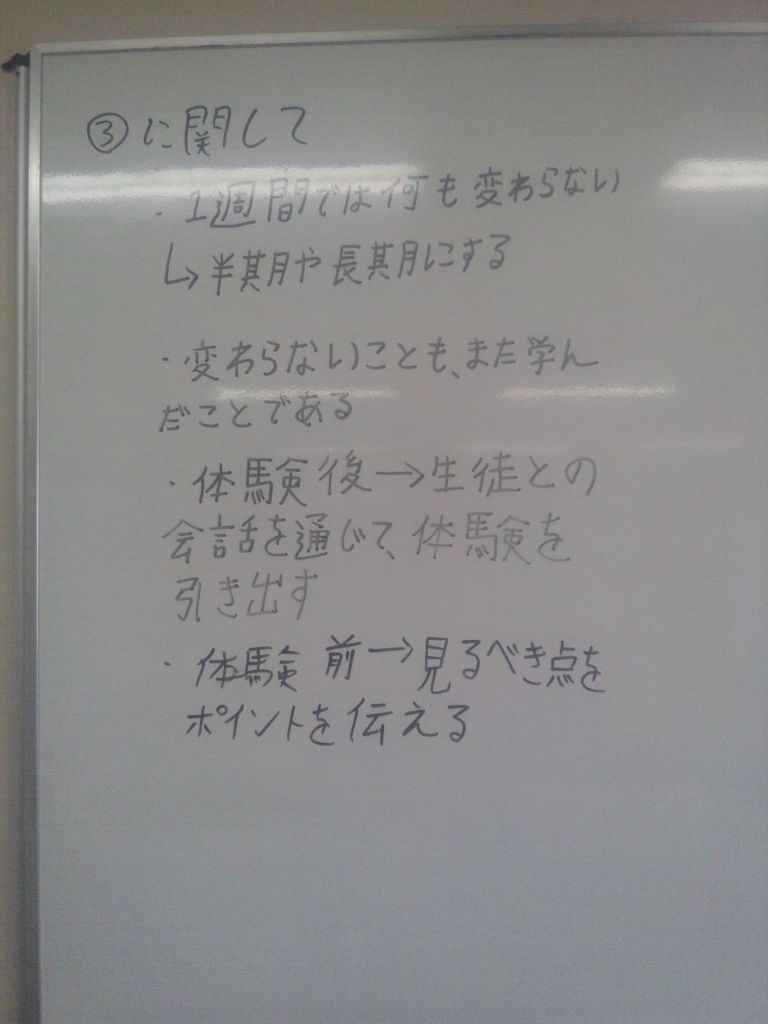 ③に関して
・1週間では何も変わらない
↳半期や長期にする
・変わらないことも、また学ん
だことである
・体験後→生徒との
会話を通じて、体験を
引き出す
・体験前→見るべき点を
ポイントを伝える